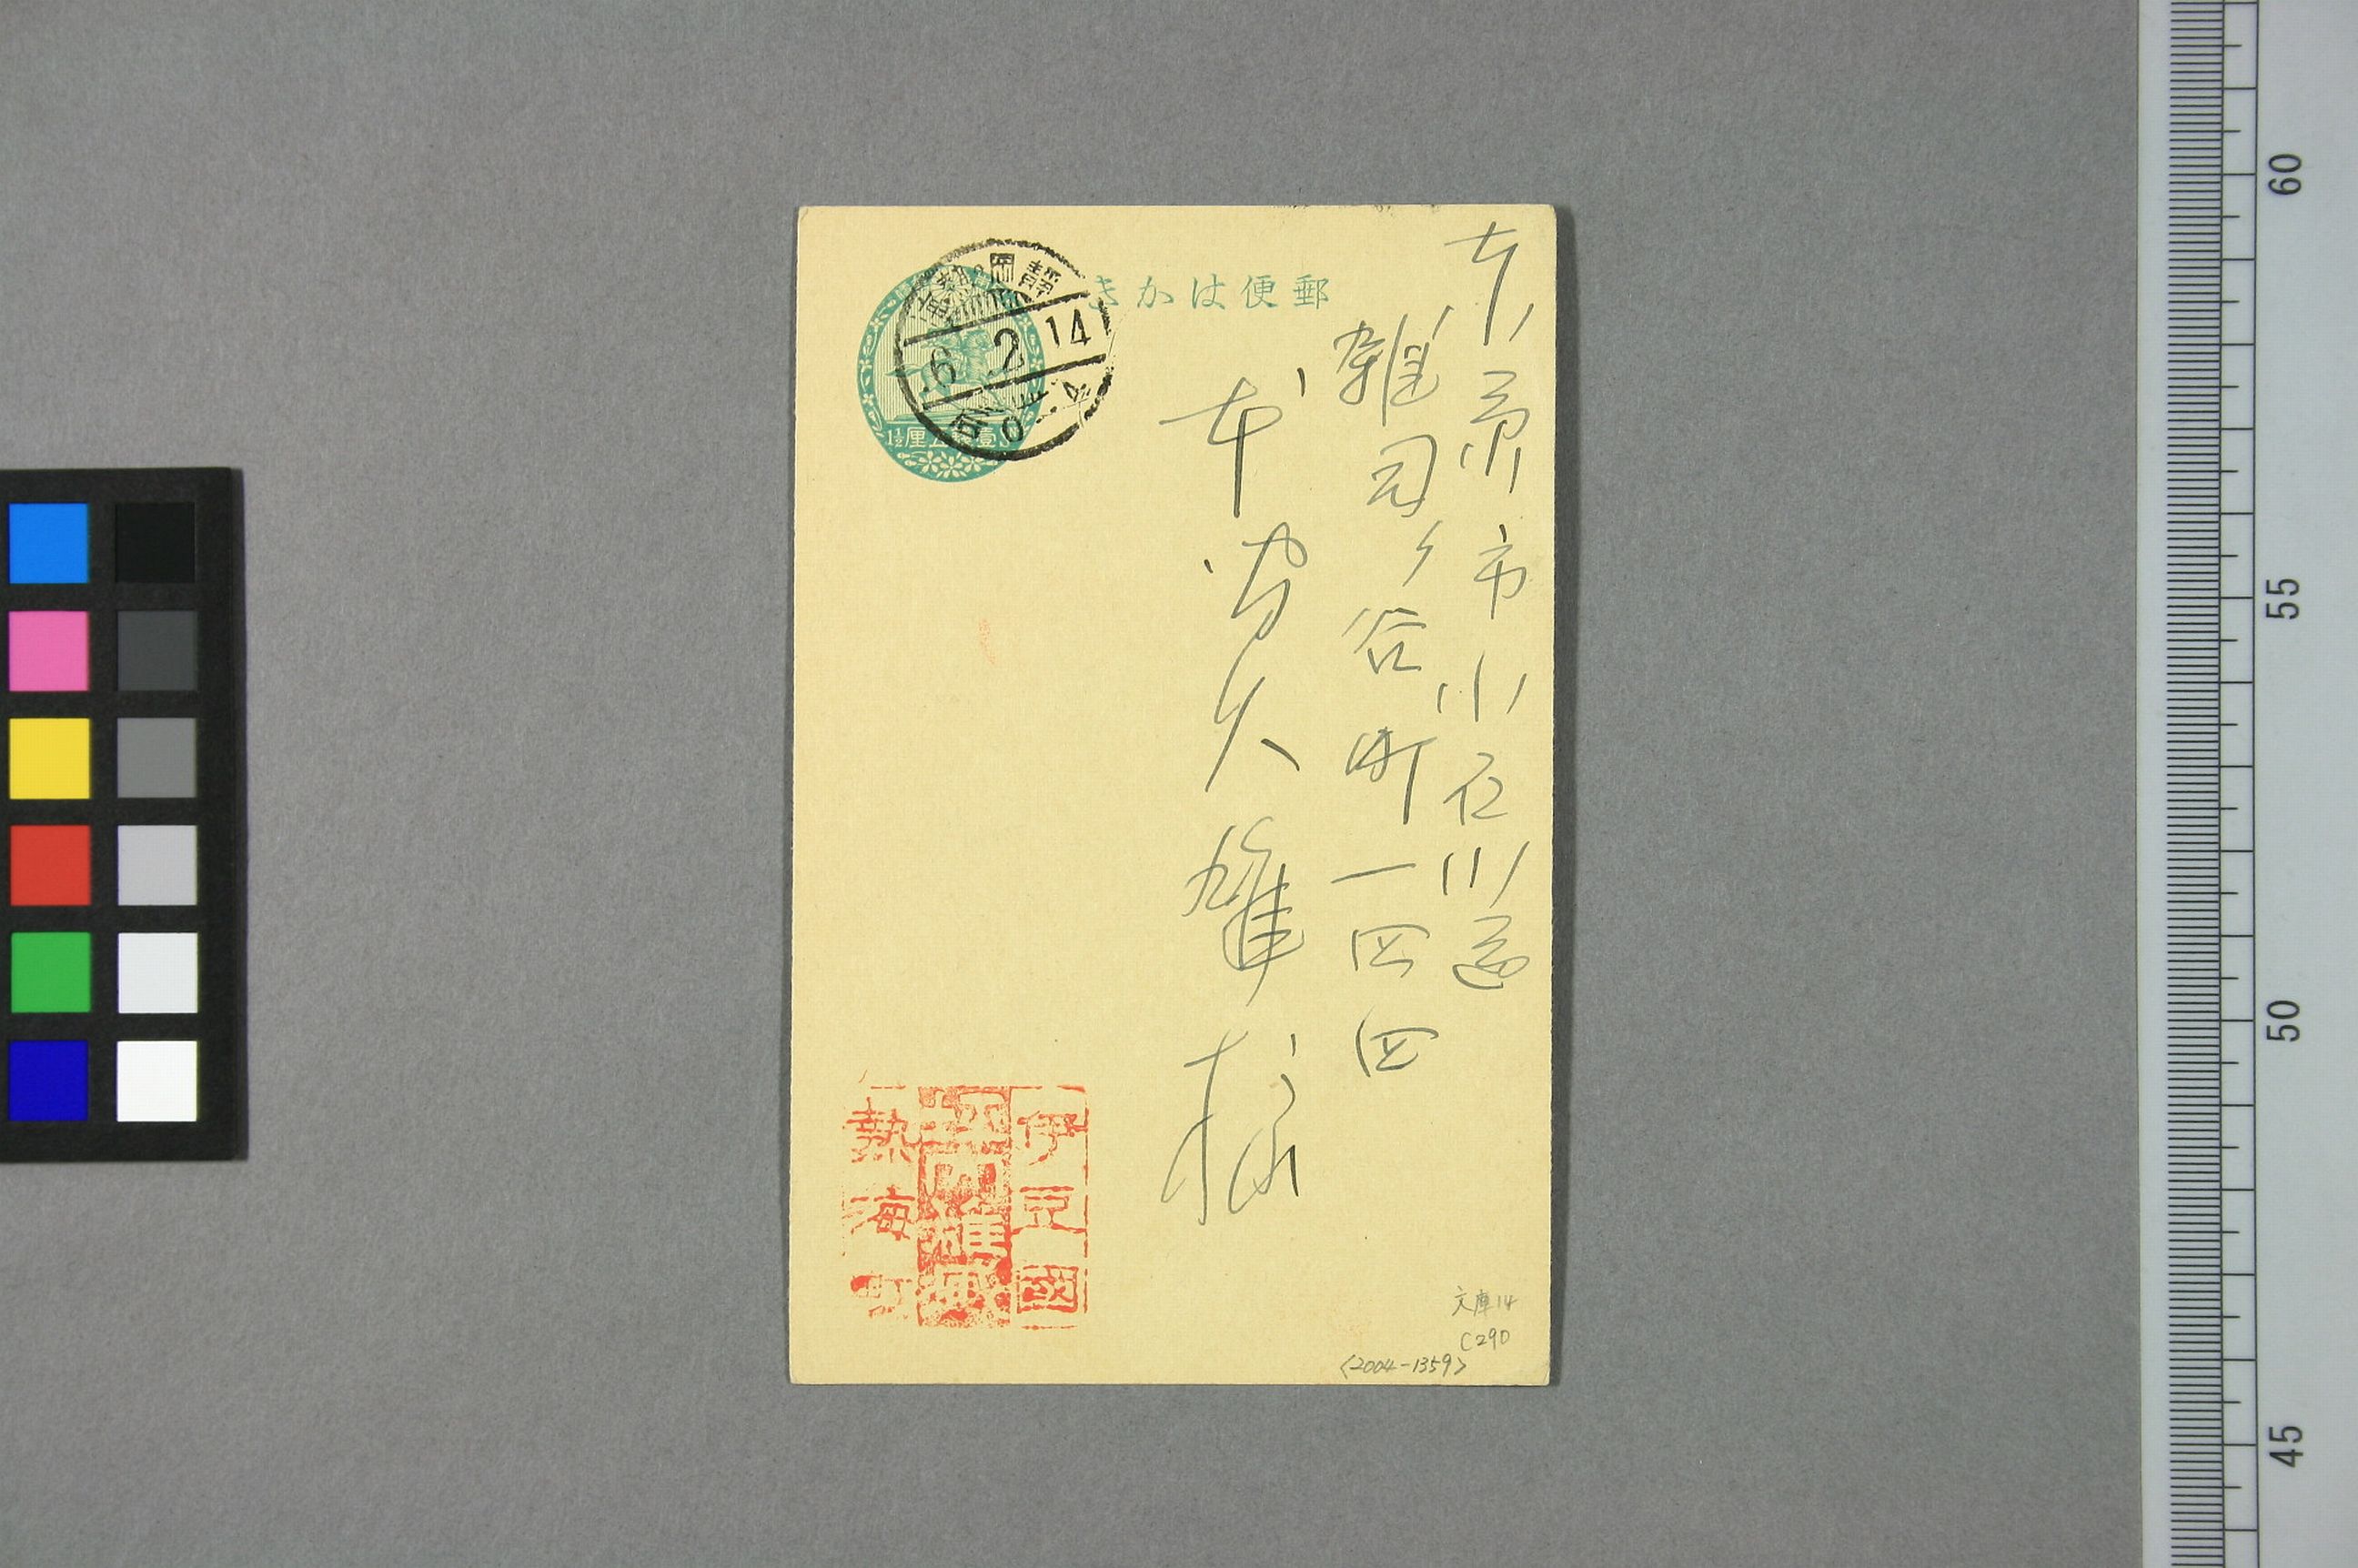 郵便はかき
東京市小石川區
雑司ヶ谷町一四四
本間久雄様
靜岡
熱海
6.2.14
后0-4
壹錢五厘
1½ S
伊豆國
坪内雄藏
熱海町
文庫14
C290
<2004-1359>
60
55
50
45